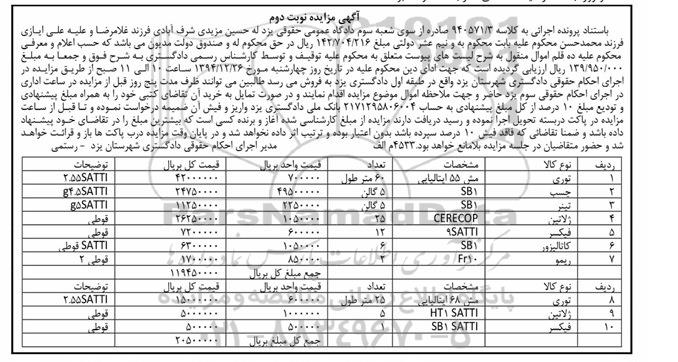 آگهی مزایده نوبت دوم
باستناد پرونده اجرائی به کلاسه ۹۴۰۵۷۱/۳ صادره از سوی شعبه سوم دادگاه عمومی حقوقی یزد له حسین مزیدی شرف آبادی فرزند غلامرضا و علیه علی ایازی
فرزند محمدحسن محکوم علیه بابت محکوم به و نیم عشر دولتی مبلغ ۱۴۲/۷۰۴/۲۱۶ ریال در حق محکوم له و صندوق دولت مدیون می باشد که حسب اعلام و معرفی
محکوم علیه ده قلم اموال منقول به شرح لیست های پیوست متعلق به محکوم علیه توقیف و توسط کارشناس رسمی دادگستری به شرح فوق و جمعا به مبلغ
۱۳۹/۹۵۰/۰۰۰ ریال ارزیابی گردیده است که جهت ادای دین محکوم علیه در تاریخ روز چهارشنبه مورخ ۱۳۹۴/۱۲/۲۶ ساعت ۱۰ الی ۱۱ صبح از طریق مزایده در
اجرای احکام حقوقی دادگستری شهرستان یزد واقع در طبقه اول دادگستری یزد به فروش می رسد طالبین می توانند ظرف مدت پنج روز قبل از مزایده در ساعت اداری
در اجرای احکام حقوقی سوم یزد حاضر و جهت ملاحظه اموال موضوع مزایده اقدام نمایند و در صورت تمایل به خرید آن تقاضای کتبی خود را به همراه مبلغ پیشنهادی
و تودیع مبلغ ۱۰ درصد از کل مبلغ پیشنهادی به حساب ۲۱۷۱۲۹۵۸۰۶۰۰۴ بانک ملی دادگستری یزد واریز و فیش آن ضمیمه درخواست نموده و تا قبل از ساعت
مزایده در پاکت دربسته تحویل اجرا نموده و رسید دریافت دارند مزایده از مبلغ کارشناسی شده آغاز و برنده کسی است که بیشترین مبلغ را در تقاضای خود پیشنهاد
داده باشد و ضمنا تقاضائی که فاقد فیش ۱۰ درصد سپرده باشد بدون اعتبار بوده و ترتیب اثر داده نخواهد شد و در پایان وقت مزایده درب پاکت ها باز و قرائت خواهد
شد و حضور متقاضیان در جلسه مزایده بلامانع خواهد بود.۴۵۳۳م الف مدیر اجرای احکام حقوقی دادگستری شهرستان یزد - رستمی
ردیف نوع کالا مشخصات تعداد قیمت واحد بریال قیمت کل بریال توضیحات
۱ توری مش ۵۵ ایتالیایی ۶۰ متر طول ۷۰۰۰۰۰ ۴۲۰۰۰۰۰۰ ۲.۵۵SATTI
۲ چسب SB۱ ۵ گالن ۴۹۵۰۰۰۰ ۲۴۷۵۰۰۰۰ g۴.۵SATTI
۳ تینر SB۱ ۵ گالن ۲۲۵۰۰۰۰ ۱۱۲۵۰۰۰۰ g۵SATTI
۴ ژلاتین CERECOP ۲۵ ۱۰۵۰۰۰۰ ۲۶۲۵۰۰۰۰ قوطی
۵ فیکسر ۹SATTI ۱۲ ۶۰۰۰۰۰ ۷۲۰۰۰۰۰ قوطی
۶ کاتالیزور SB۱ ۶ ۱۰۵۰۰۰۰ ۶۳۰۰۰۰۰ SATTI قوطی
۷ ریمو Fr۱۰ ۲ ۸۵۰۰۰۰ ۱۷۰۰۰۰۰ قوطی ۲
جمع مبلغ کل بریال ۱۱۹۴۵۰۰۰۰
ردیف نوع کالا مشخصات تعداد قیمت واحد بریال قیمت کل بریال توضیحات
۸ توری مش ۶۸ ایتالیایی ۲۵ متر طول ۶۰۰۰۰۰ ۱۵۰۰۰۰۰۰ ۲.۵۵SATTI
۹ ژلاتین HT۱ SATTI ۵ ۱۰۰۰۰۰۰ ۵۰۰۰۰۰۰ قوطی
۱۰ فیکسر SB۱ SATTI ۱ ۵۰۰۰۰۰ ۵۰۰۰۰۰ قوطی
جمع مبلغ کل بریال ۲۰۵۰۰۰۰۰